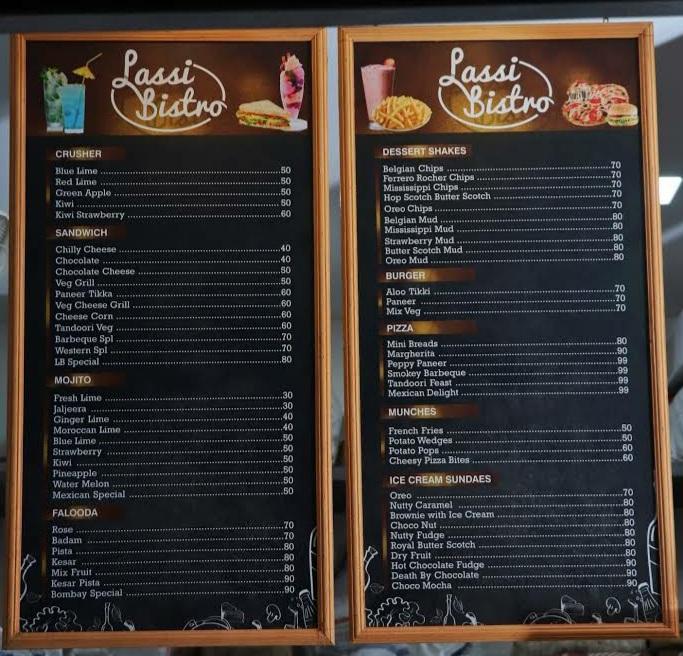 Lassi
Bistro
CRUSHER
Blue Lime 50
Red Lime 50
Green Apple 50
Kiwi 50
Kiwi Strawberry 60
SANDWICH
Chilly Cheese 40
Chocolate 40
Chocolate Cheese 50
Veg Grill 50
Paneer Tikka 60
Veg Cheese Grill 60
Cheese Corn 60
Tandoori Veg 60
Barbeque Spl 70
Western Spl 70
LB Special 80
MOJITO
Fresh Lime 30
Jaljeera 30
Ginger Lime 40
Moroccan Lime 40
Blue Lime 50
Strawberry 50
Kiwi 50
Pineapple 50
Water Melon 50
Mexican Special 50
FALOODA
Rose 70
Badam 70
Pista 80
Kesar 80
Mix Fruit 80
Kesar Pista 90
Bombay Special 90
Lassi
Bistro
DESSERT SHAKES
Belgian Chips 70
Ferrero Rocher Chips 70
Mississippi Chips 70
Hop Scotch Butter Scotch 70
Oreo Chips 70
Belgian Mud 80
Mississippi Mud 80
Strawberry Mud 80
Butter Scotch Mud 80
Oreo Mud 80
BURGER
Aloo Tikki 70
Paneer 70
Mix Veg 70
PIZZA
Mini Breads 80
Margherita 90
Peppy Paneer 99
Smokey Barbeque 99
Tandoori Feast 99
Mexican Delight 99
MUNCHES
French Fries 50
Potato Wedges 50
Potato Pops 60
Cheesy Pizza Bites 60
ICE CREAM SUNDAES
Oreo 70
Nutty Caramel 80
Brownie with Ice Cream 80
Choco Nut 80
Nutty Fudge 80
Royal Butter Scotch 80
Dry Fruit 80
Hot Chocolate Fudge 90
Death By Chocolate 90
Choco Mocha 90